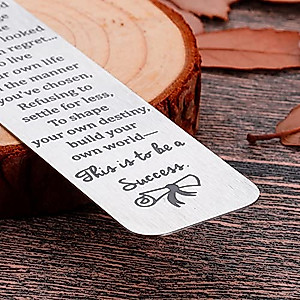 hooked
regret—
to live
your own life
the manner
you've chosen,
Refusing to
settle for less,
To shape
your own destiny,
build your
own world—
This is to be a
Success.